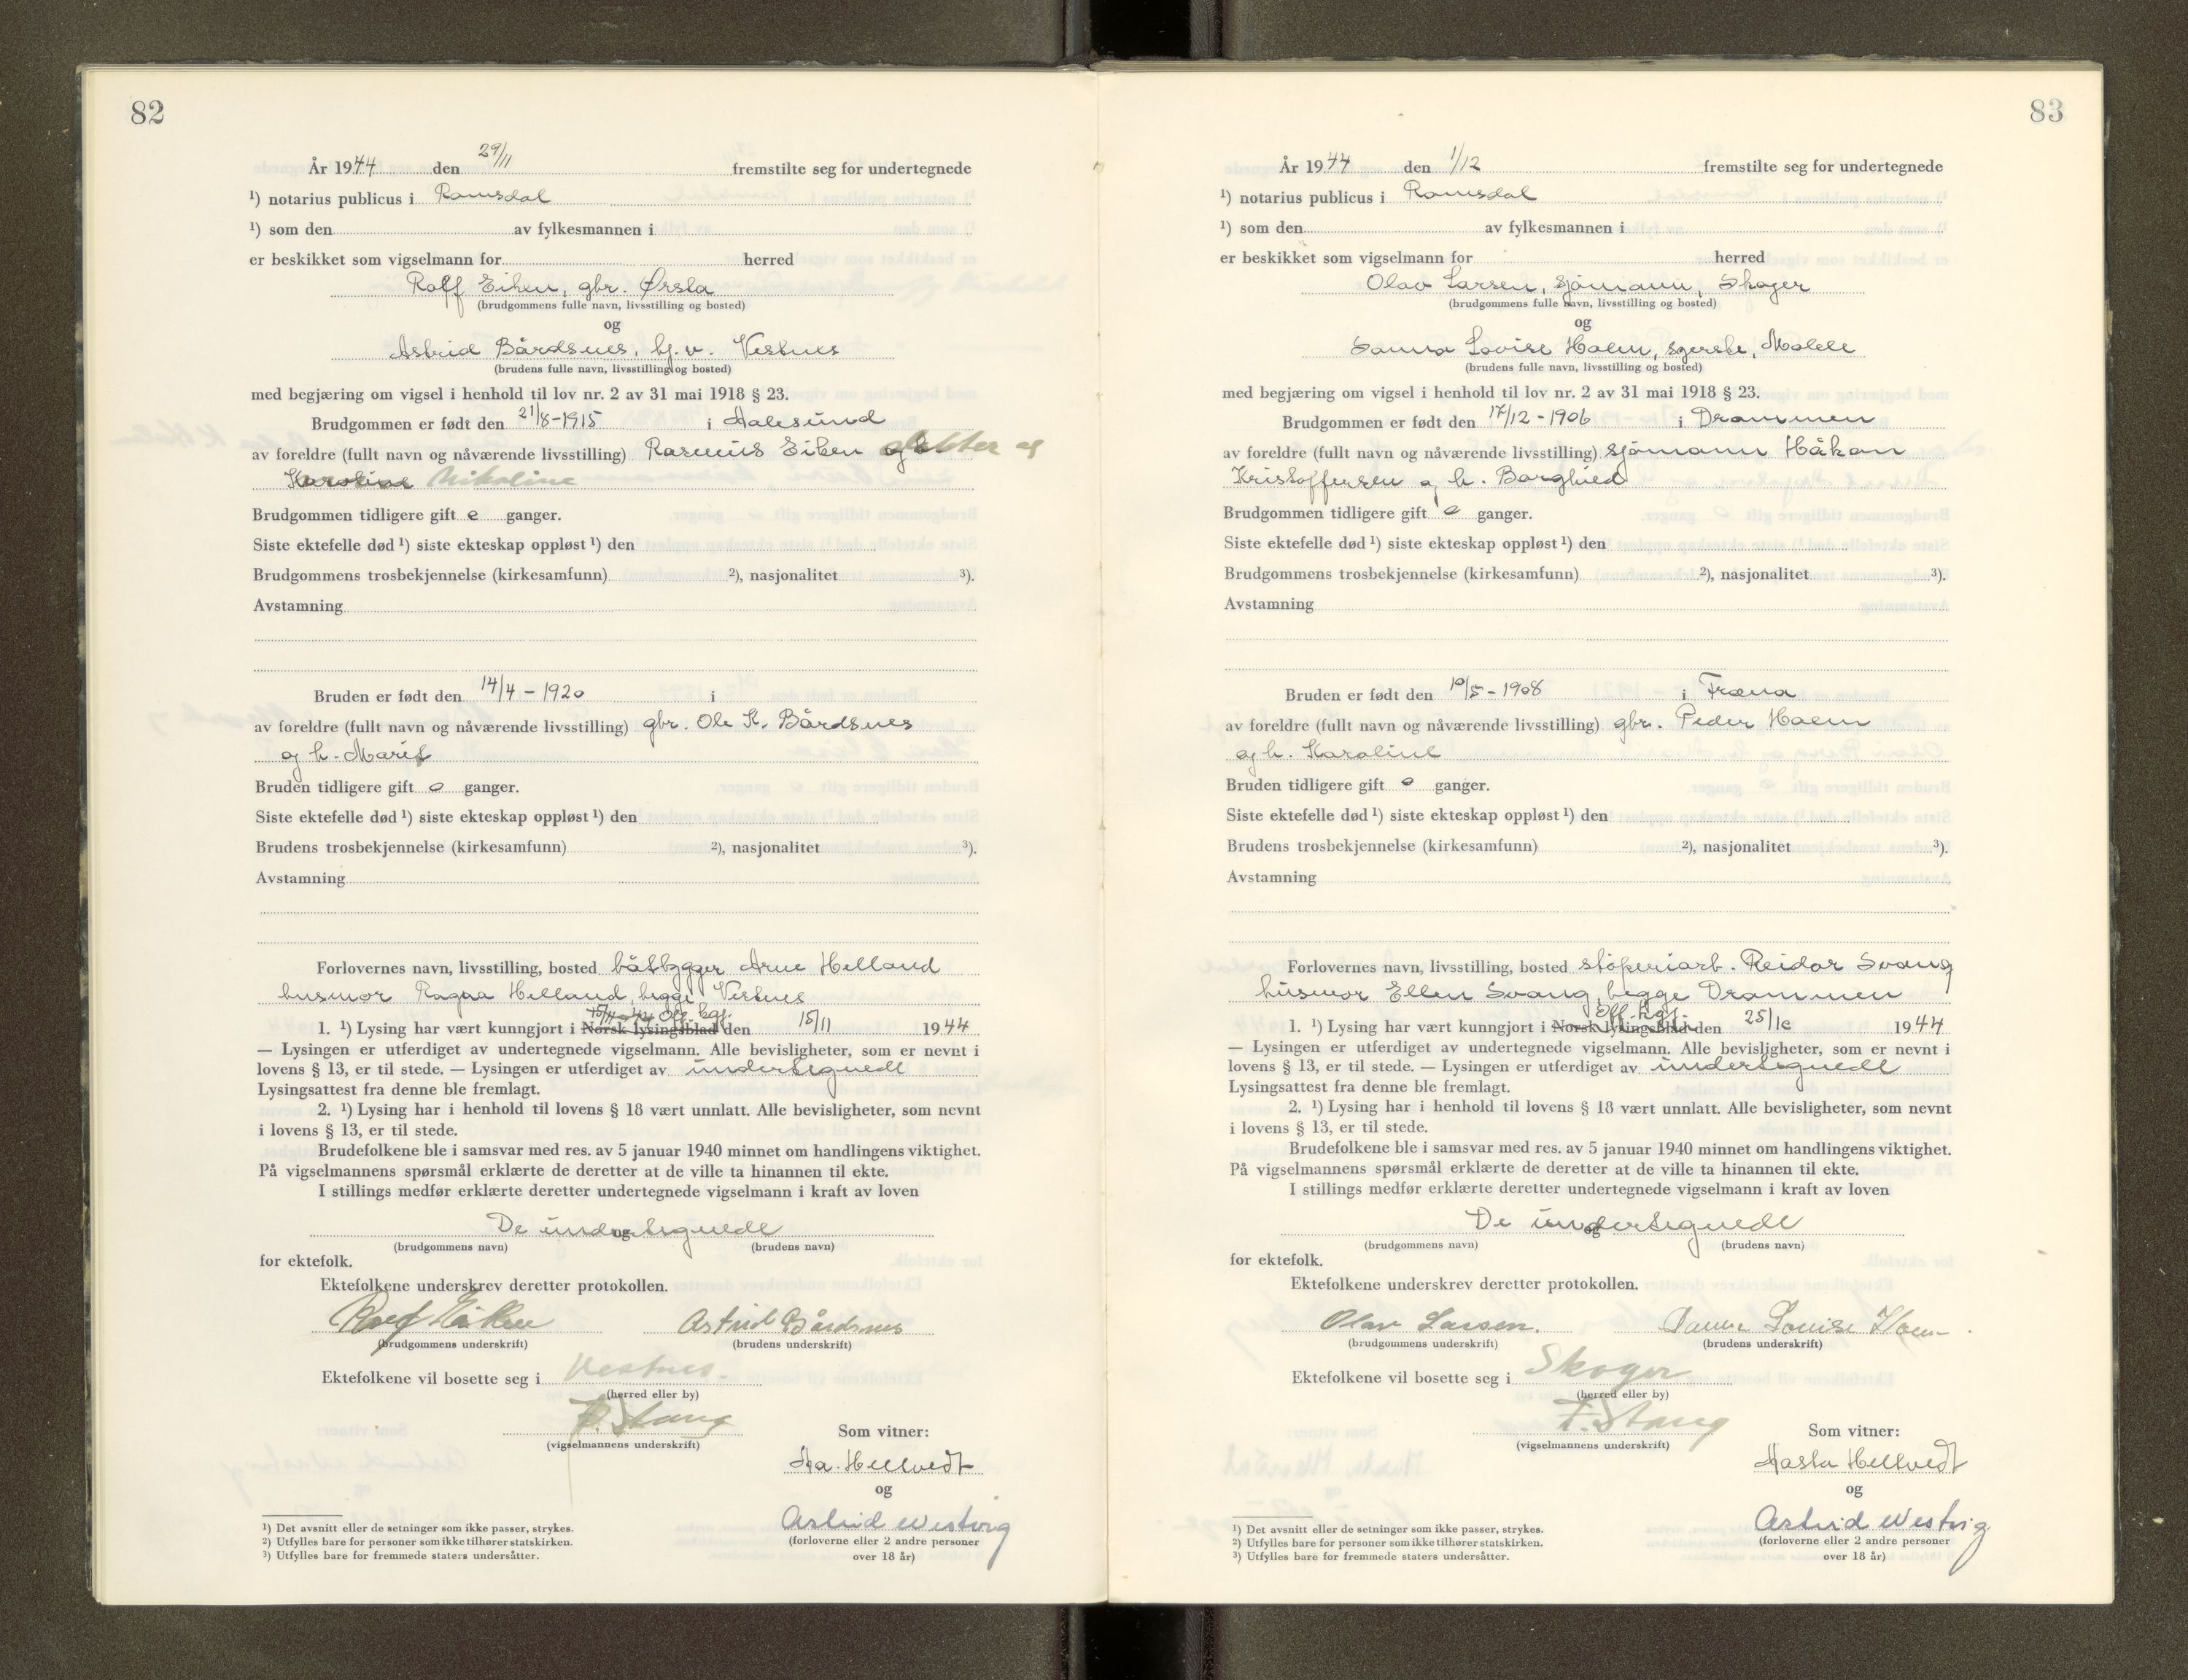 82
År 1944 den 29/11 fremstilte seg for undertegnede
¹) notarius publicus i Romsdal
¹) som den av fylkesmannen i
er beskikket som vigselmann for herred
Rolf Eiken, gbr. Ørsta
(brudgommens fulle navn, livsstilling og bosted)
og
Astrid Bårdsnes, hj.v. Vestnes
(brudens fulle navn, livsstilling og bosted)
med begjæring om vigsel i henhold til lov nr. 2 av 31 mai 1918 § 23.
Brudgommen er født den 21/8-1915 i Aalesund
av foreldre (fullt navn og nåværende livsstilling) Rasmus Eiken og
Karoline Nikoline
Brudgommen tidligere gift 0 ganger.
Siste ektefelle død ¹) siste ekteskap oppløst ¹) den
Brudgommens trosbekjennelse (kirkesamfunn) ²), nasjonalitet ³).
Avstamning
Bruden er født den 14/4 - 1920 i
av foreldre (fullt navn og nåværende livsstilling) gbr. Ole K. Bårdsnes
og h. Marit
Bruden tidligere gift 0 ganger.
Siste ektefelle død ¹) siste ekteskap oppløst ¹) den
Brudens trosbekjennelse (kirkesamfunn) ²), nasjonalitet ³).
Avstamning
Forlovernes navn, livsstilling, bosted båtbygger Arne Helland
husmor Ragna Helland, begge Vestnes
15/11-44 Off. kgj.
1. ¹) Lysing har vært kunngjort i Norsk lysingsblad den 15/11 1944
— Lysingen er utferdiget av undertegnede vigselmann. Alle bevisligheter, som er nevnt i
lovens § 13, er til stede. — Lysingen er utferdiget av undertegnede
Lysingsattest fra denne ble fremlagt.
2. ¹) Lysing har i henhold til lovens § 18 vært unnlatt. Alle bevisligheter, som nevnt
i lovens § 13, er til stede.
Brudefolkene ble i samsvar med res. av 5 januar 1940 minnet om handlingens viktighet.
På vigselmannens spørsmål erklærte de deretter at de ville ta hinannen til ekte.
I stillings medfør erklærte deretter undertegnede vigselmann i kraft av loven
De undertegnede
og
(brudgommens navn) (brudens navn)
for ektefolk.
Ektefolkene underskrev deretter protokollen.
Rolf Eiken Astrid Bårdsnes
(brudgommens underskrift) (brudens underskrift)
Ektefolkene vil bosette seg i Vestnes.
(herred eller by)
F. Stang
(vigselmannens underskrift)
Som vitner:
Aa. Hellvedt
og
Astrid Westvig
(forloverne eller 2 andre personer
over 18 år)
¹) Det avsnitt eller de setninger som ikke passer, strykes.
²) Utfylles bare for personer som ikke tilhører statskirken.
³) Utfylles bare for fremmede staters undersåtter.
83
År 1944 den 1/12 fremstilte seg for undertegnede
¹) notarius publicus i Romsdal
¹) som den av fylkesmannen i
er beskikket som vigselmann for herred
Olav Larsen, sjömann, Skoger
(brudgommens fulle navn, livsstilling og bosted)
og
Sanna Lovise Hoem, syerske, Molde
(brudens fulle navn, livsstilling og bosted)
med begjæring om vigsel i henhold til lov nr. 2 av 31 mai 1918 § 23.
Brudgommen er født den 17/12 - 1906 i Drammen
av foreldre (fullt navn og nåværende livsstilling) sjömann Håkon
Kristoffersen og h. Borghild
Brudgommen tidligere gift 0 ganger.
Siste ektefelle død ¹) siste ekteskap oppløst ¹) den
Brudgommens trosbekjennelse (kirkesamfunn) ²), nasjonalitet ³).
Avstamning
Bruden er født den 10/5 - 1908 i Fræna
av foreldre (fullt navn og nåværende livsstilling) gbr. Peder Hoem
og h. Karoline
Bruden tidligere gift 0 ganger.
Siste ektefelle død ¹) siste ekteskap oppløst ¹) den
Brudens trosbekjennelse (kirkesamfunn) ²), nasjonalitet ³).
Avstamning
Forlovernes navn, livsstilling, bosted stöperiarb. Reidar Svang
husmor Ellen Svang, begge Drammen
Off. kgj.
1. ¹) Lysing har vært kunngjort i Norsk lysingsblad den 25/10 1944
— Lysingen er utferdiget av undertegnede vigselmann. Alle bevisligheter, som er nevnt i
lovens § 13, er til stede. — Lysingen er utferdiget av undertegnede
Lysingsattest fra denne ble fremlagt.
2. ¹) Lysing har i henhold til lovens § 18 vært unnlatt. Alle bevisligheter, som nevnt
i lovens § 13, er til stede.
Brudefolkene ble i samsvar med res. av 5 januar 1940 minnet om handlingens viktighet.
På vigselmannens spørsmål erklærte de deretter at de ville ta hinannen til ekte.
I stillings medfør erklærte deretter undertegnede vigselmann i kraft av loven
De undertegnede
og
(brudgommens navn) (brudens navn)
for ektefolk.
Ektefolkene underskrev deretter protokollen.
Olav Larsen. Sanna Louise Hoem
(brudgommens underskrift) (brudens underskrift)
Ektefolkene vil bosette seg i Skoger
(herred eller by)
F. Stang
(vigselmannens underskrift)
Som vitner:
Aasta Hellvedt
og
Astrid Westvig
(forloverne eller 2 andre personer
over 18 år)
¹) Det avsnitt eller de setninger som ikke passer, strykes.
²) Utfylles bare for personer som ikke tilhører statskirken.
³) Utfylles bare for fremmede staters undersåtter.